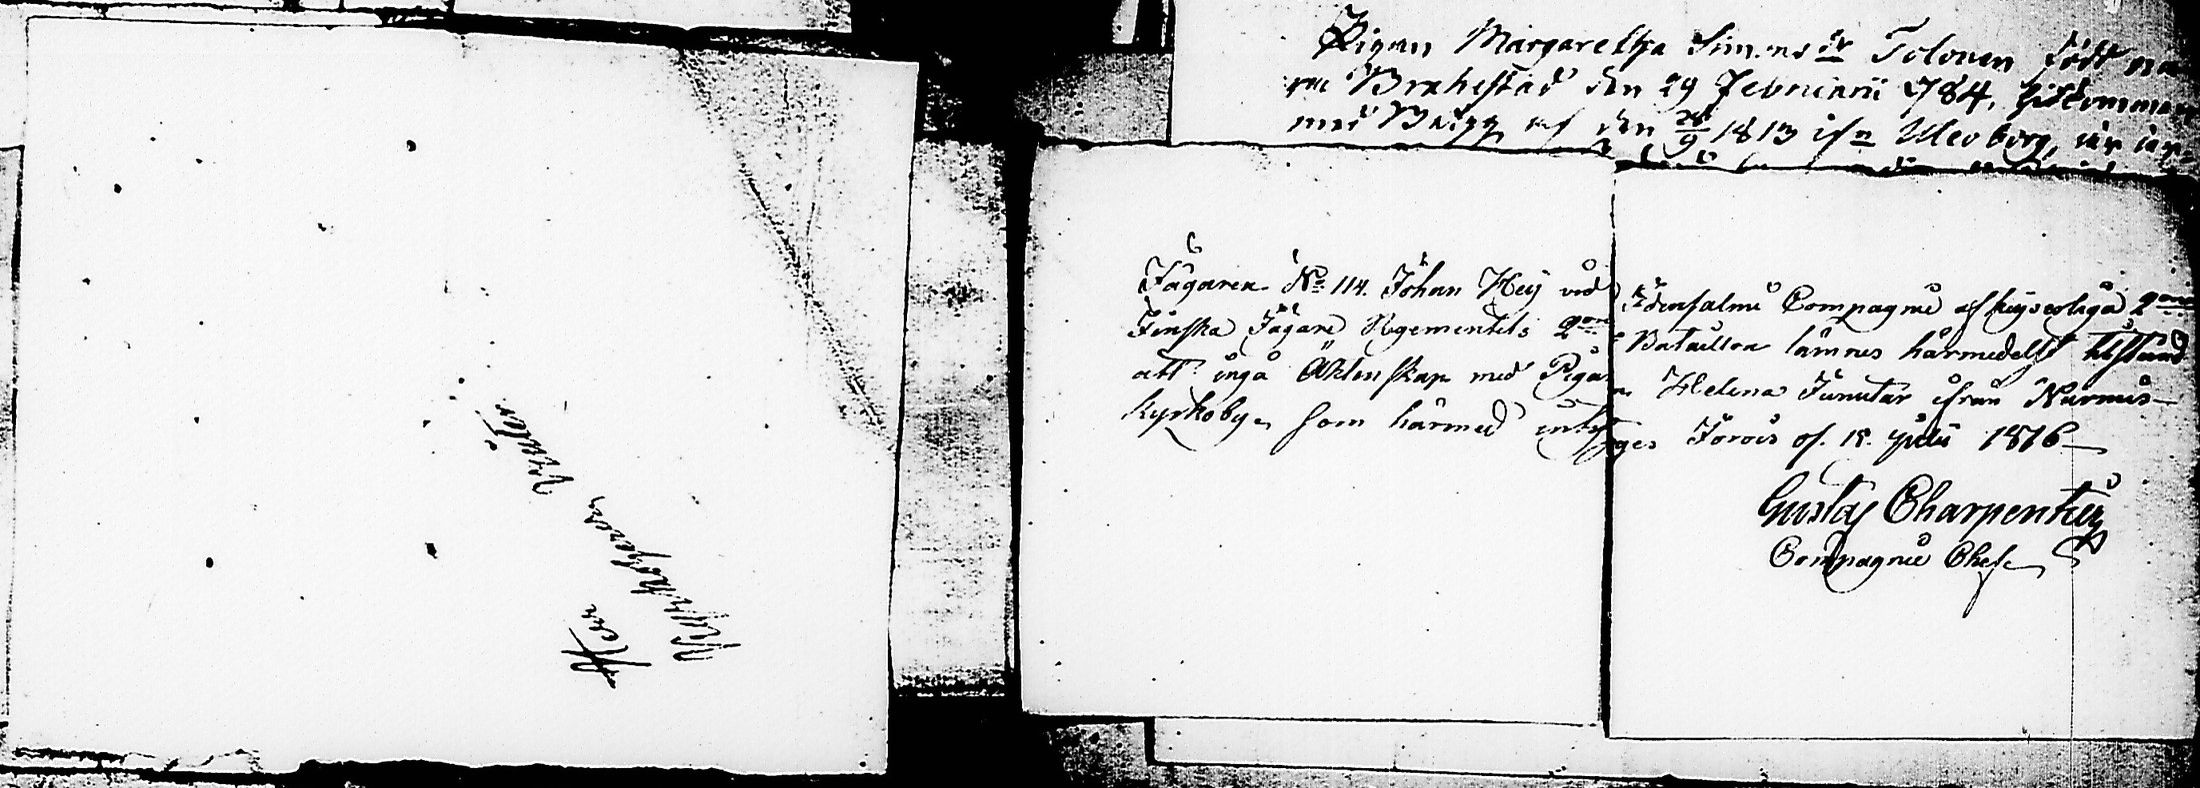 Pigan Margaretha Simonsdr Tolonen född nä-
ra Brahestad den 29 Februarii 784, hitkommen
med Betyg af den 1813 ifn Uleoborg, är
Jägaren No 114. Johan Heij vid Idensalmi Compagnie af Keijserliga 2dra
Finska Jägare Regementets 2dra Bataillon lämnes härmedelst tilstånd
att ingå Äktenskap med Pigan Helena Turutar ifrån Nurmis
Kyrkoby, som härmed intygas Jorois of. 18. Julii 1816
Gustaf Charpentier
Compagnie Chef
Herr
Kyrkoherden